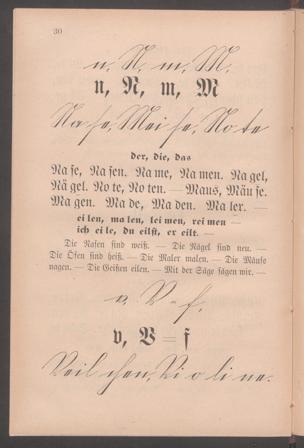 30
n, N, m, M,
n, N, m, M
Na se, Mei se, No te
der, die, das
Na se, Na sen. Na me, Na men. Na gel,
Nä gel. No te, No ten. — Maus, Mäu se.
Ma gen. Ma de, Ma den. Ma ler. —
ei len, ma len, lei men, rei men —
ich ei le, du eilst, er eilt. —
Die Nasen sind weiß. — Die Nägel sind neu. —
Die Öfen sind heiß. — Die Maler malen. — Die Mäuse
nagen. — Die Geißen eilen. — Mit der Säge sägen wir. —
v, V = f,
v, V = f
Veil chen, Vi o li ne.